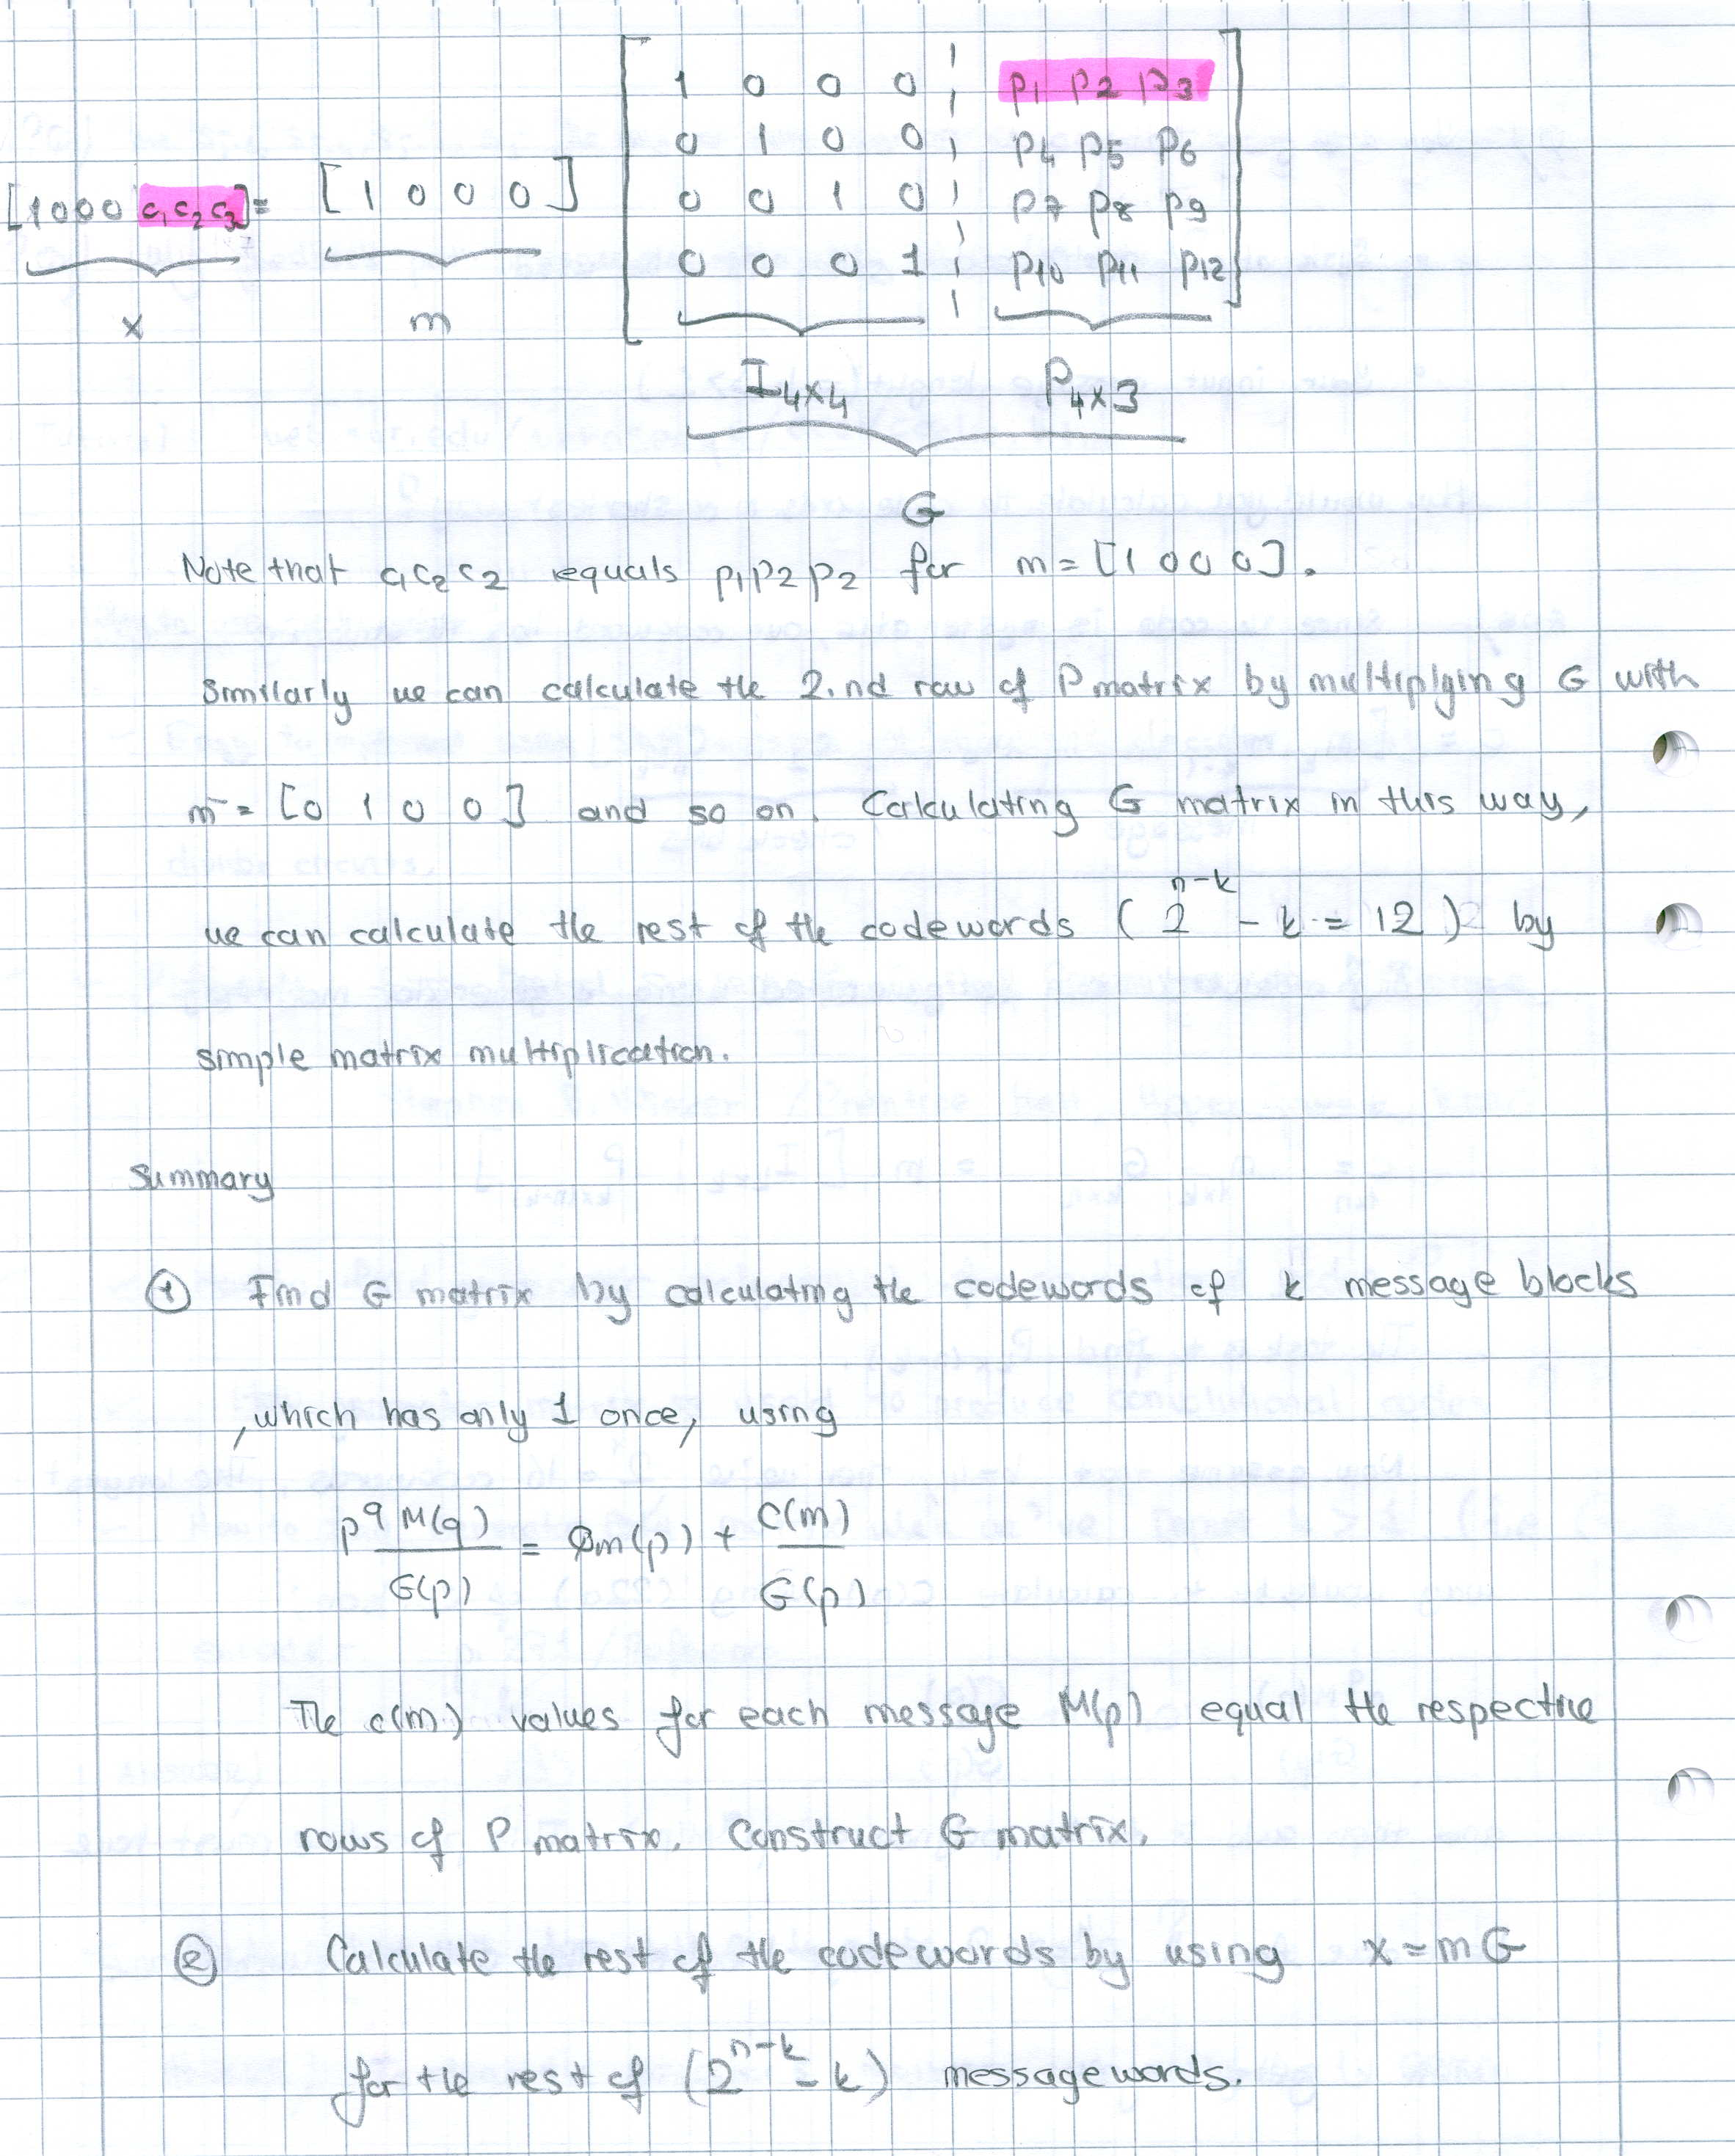 1 0 0 0 p1 p2 p3
0 1 0 0 p4 p5 p6
[1000 c1c2c3] = [1 0 0 0] 0 0 1 0 p7 p8 p9
0 0 0 1 p10 p11 p12
x m
I4x4 P4x3
G
Note that c1c2c2 equals p1p2p2 for m = [1 0 0 0].
Similarly we can calculate the 2.nd row of P matrix by multiplying G with
m = [0 1 0 0] and so on. Calculating G matrix in this way,
we can calculate the rest of the codewords (2^n-k - k = 12) by
simple matrix multiplication.
Summary
① Find G matrix by calculating the codewords of k message blocks
, which has only 1 once, using
p^q M(q) / G(p) = Qm(p) + C(m) / G(p)
The c(m) values for each message M(p) equal the respective
rows of P matrix. Construct G matrix.
② Calculate the rest of the codewords by using x = mG
for the rest of (2^n-k - k) messagewords.